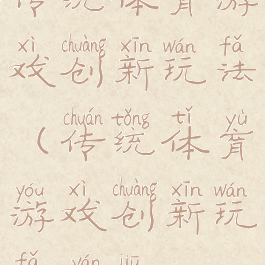 传统体育游
xì chuàng xīn wán fǎ
戏创新玩法
chuán tǒng tǐ yù
（传统体育
yóu xì chuàng xīn wán
游戏创新玩
fǎ yán jiū